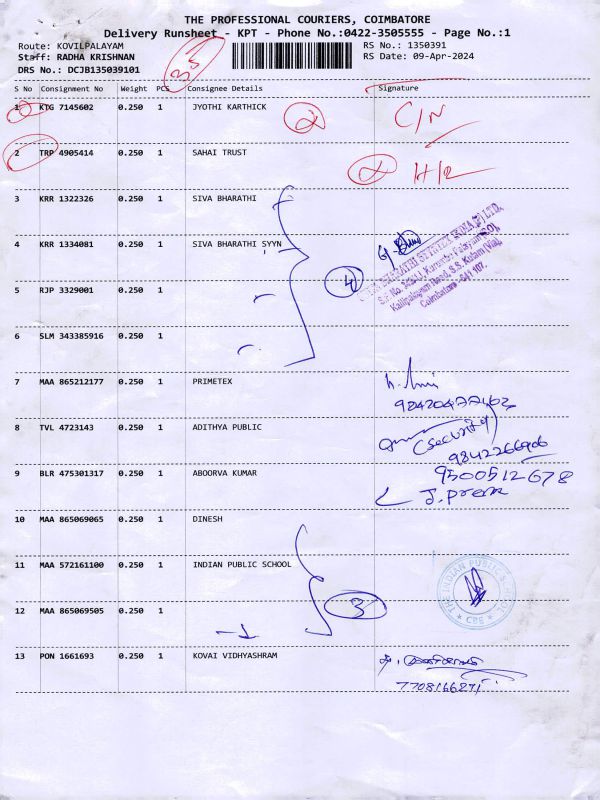 THE PROFESSIONAL COURIERS, COIMBATORE
Delivery Runsheet - KPT - Phone No.:0422-3505555 - Page No.:1
Route: KOVILPALAYAM
RS No.: 1350391
Staff: RADHA KRISHNAN
RS Date: 09-Apr-2024
DRS No.: DCJB135039101
35
S No Consignment No Weight PCS Consignee Details Signature
1 KTG 7145602 0.250 1 JYOTHI KARTHICK C/N
2 TRP 4905414 0.250 1 SAHAI TRUST
3 KRR 1322326 0.250 1 SIVA BHARATHI
4 KRR 1334081 0.250 1 SIVA BHARATHI SYYN
4
Coimbatore - 641 107.
5 RJP 3329001 0.250 1
6 SLM 343385916 0.250 1
7 MAA 865212177 0.250 1 PRIMETEX
8 TVL 4723143 0.250 1 ADITHYA PUBLIC
Csecurity
9842266906
9 BLR 475301317 0.250 1 ABOORVA KUMAR
9500512678
J. prem
10 MAA 865069065 0.250 1 DINESH
11 MAA 572161100 0.250 1 INDIAN PUBLIC SCHOOL
THE INDIAN PUBLIC SCHOOL
CBE
12 MAA 865069505 0.250 1
3
13 PON 1661693 0.250 1 KOVAI VIDHYASHRAM
7708166271